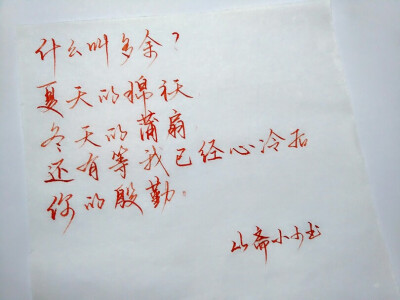 什么叫多余？
夏天的棉袄
冬天的蒲扇
还有等我已经心冷后
你的殷勤。